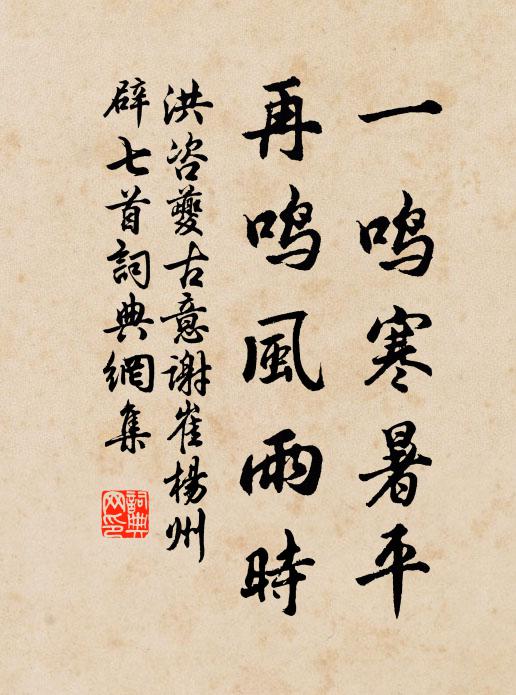 一鸣寒暑平
再鸣風雨時
洪咨夔古意謝崔楊州
辟七首詞典網集
詞典网印